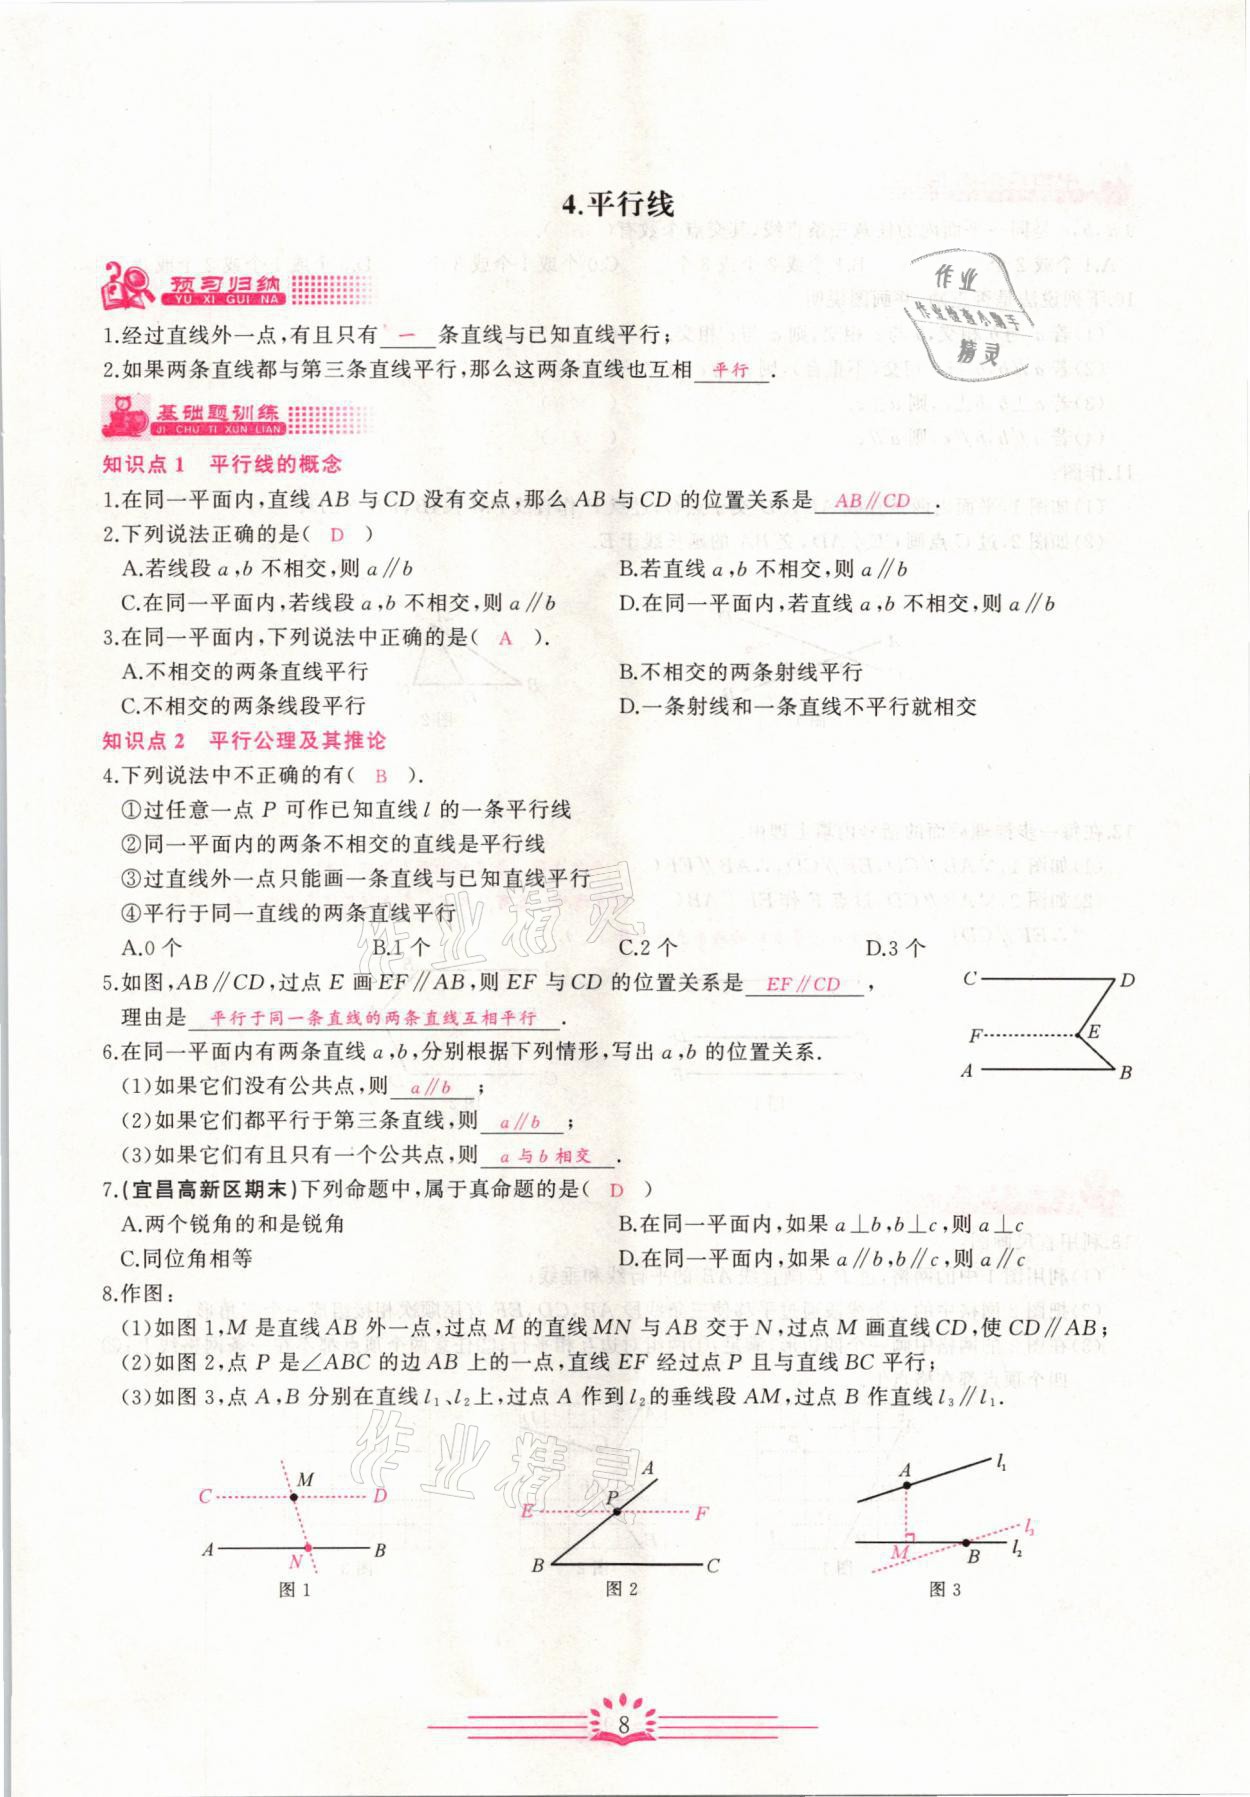 4.平行线
预习归纳
YU XI GUI NA
1.经过直线外一点,有且只有 一 条直线与已知直线平行;
2.如果两条直线都与第三条直线平行,那么这两条直线也互相 平行 .
基础题训练
JI CHU TI XUN LIAN
知识点1 平行线的概念
1.在同一平面内,直线AB与CD没有交点,那么AB与CD的位置关系是 AB∥CD .
2.下列说法正确的是( D )
A.若线段a,b不相交,则a∥b B.若直线a,b不相交,则a∥b
C.在同一平面内,若线段a,b不相交,则a∥b D.在同一平面内,若直线a,b不相交,则a∥b
3.在同一平面内,下列说法中正确的是( A ).
A.不相交的两条直线平行 B.不相交的两条射线平行
C.不相交的两条线段平行 D.一条射线和一条直线不平行就相交
知识点2 平行公理及其推论
4.下列说法中不正确的有( B ).
①过任意一点P可作已知直线l的一条平行线
②同一平面内的两条不相交的直线是平行线
③过直线外一点只能画一条直线与已知直线平行
④平行于同一直线的两条直线平行
A.0个 B.1个 C.2个 D.3个
5.如图,AB∥CD,过点E画EF∥AB,则EF与CD的位置关系是 EF∥CD ,
理由是 平行于同一条直线的两条直线互相平行 .
C D
F E
A B
6.在同一平面内有两条直线a,b,分别根据下列情形,写出a,b的位置关系.
(1)如果它们没有公共点,则 a∥b ;
(2)如果它们都平行于第三条直线,则 a∥b ;
(3)如果它们有且只有一个公共点,则 a与b相交 .
7.(宜昌高新区期末)下列命题中,属于真命题的是( D )
A.两个锐角的和是锐角 B.在同一平面内,如果a⊥b,b⊥c,则a⊥c
C.同位角相等 D.在同一平面内,如果a∥b,b∥c,则a∥c
8.作图:
(1)如图1,M是直线AB外一点,过点M的直线MN与AB交于N,过点M画直线CD,使CD∥AB;
(2)如图2,点P是∠ABC的边AB上的一点,直线EF经过点P且与直线BC平行;
(3)如图3,点A,B分别在直线l₁、l₂上,过点A作到l₂的垂线段AM,过点B作直线l₃∥l₁.
M
C D
A N B
图1
A
P
E F
B C
图2
A l₁
l₃
M B l₂
图3
8
作业
作业检查小助手
精灵
作业精灵
作业精灵